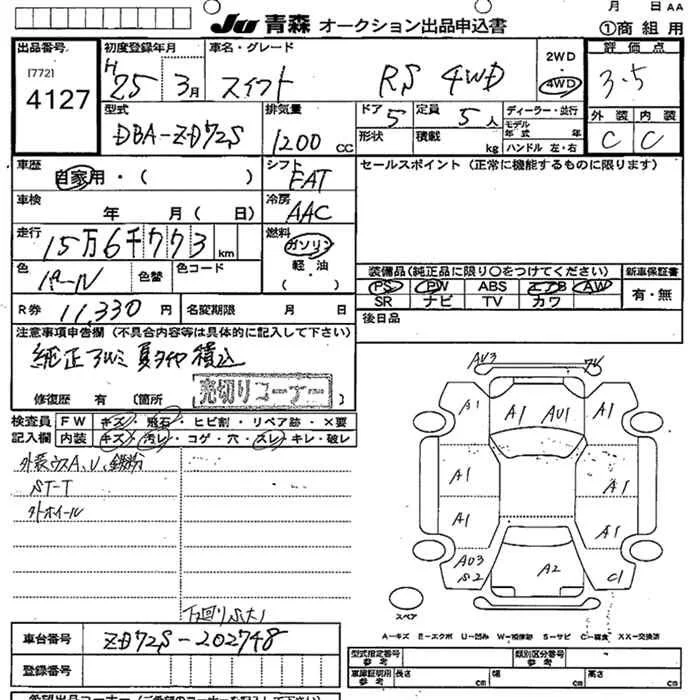 月 日 AA
JU 青森 オークション出品申込書 ①商組用
出品番号 初度登録年月 車名・グレード 2WD 評価点
[772] H 25 3月 スイフト RS 4WD 4WD 3.5
4127
型式 排気量 ドア 5 定員 5人 ディーラー・並行 外装 内装
DBA-ZD72S 1200cc 形状 積載 kg モデル年式 年 C C
ハンドル 左・右
車歴 自家用・( ) シフト FAT セールスポイント(正常に機能するものに限ります)
車検 年 月( 日) 冷房 AAC
走行 15万6千773km 燃料 ガソリン
軽・油
( )
色 パール 色替 色コード 装備品(純正品に限り○をつけてください) 新車保証書
PS PW ABS エアB AW 有・無
R券 11,330円 名変期限 月 日 SR ナビ TV カワ
後日品
注意事項申告欄(不具合内容等は具体的に記入して下さい)
純正アルミ 夏タイヤ積込
売切りコーナー
修復歴 有 〔箇所 〕
検査員 FW キズ・飛石・ヒビ割・リペア跡・×要
記入欄 内装 キズ・汚レ・コゲ・穴・スレ・キレ・破レ
外装ウスA、U、鉄粉
ST-T
外ホイール
下回りS大
AU3
A1 A1 AU1 A1
A1 A1
A1 A1
AU3
S2 A2 C1
スペア
A―キズ E―エクボ U―凹み W―補修跡 S―サビ C―腐食 XX―交換済
車台番号 ZD72S-202748
型式指定番号 参考 類別区分番号 参考
登録番号 車庫証明用 参考 長さ cm 幅 cm 高さ cm
希望出品コーナー(ご希望のコーナーを記入